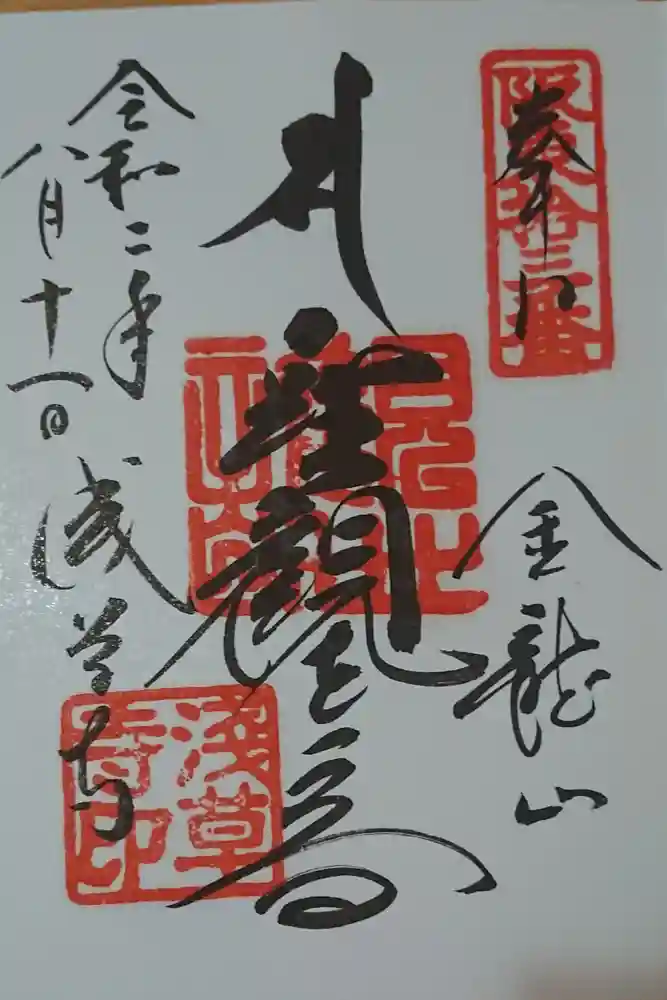 阪東拾三番
奉拝
金龍山
聖観世音
令和二年
八月十一日
浅草寺
浅草
寺印